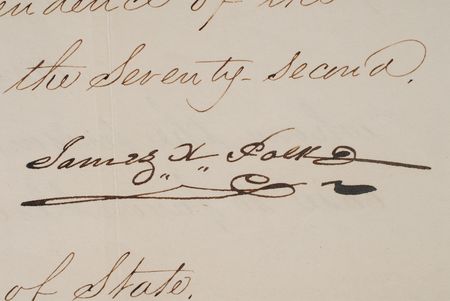 endence of the
the Seventy-second.
James K Polk
of State.